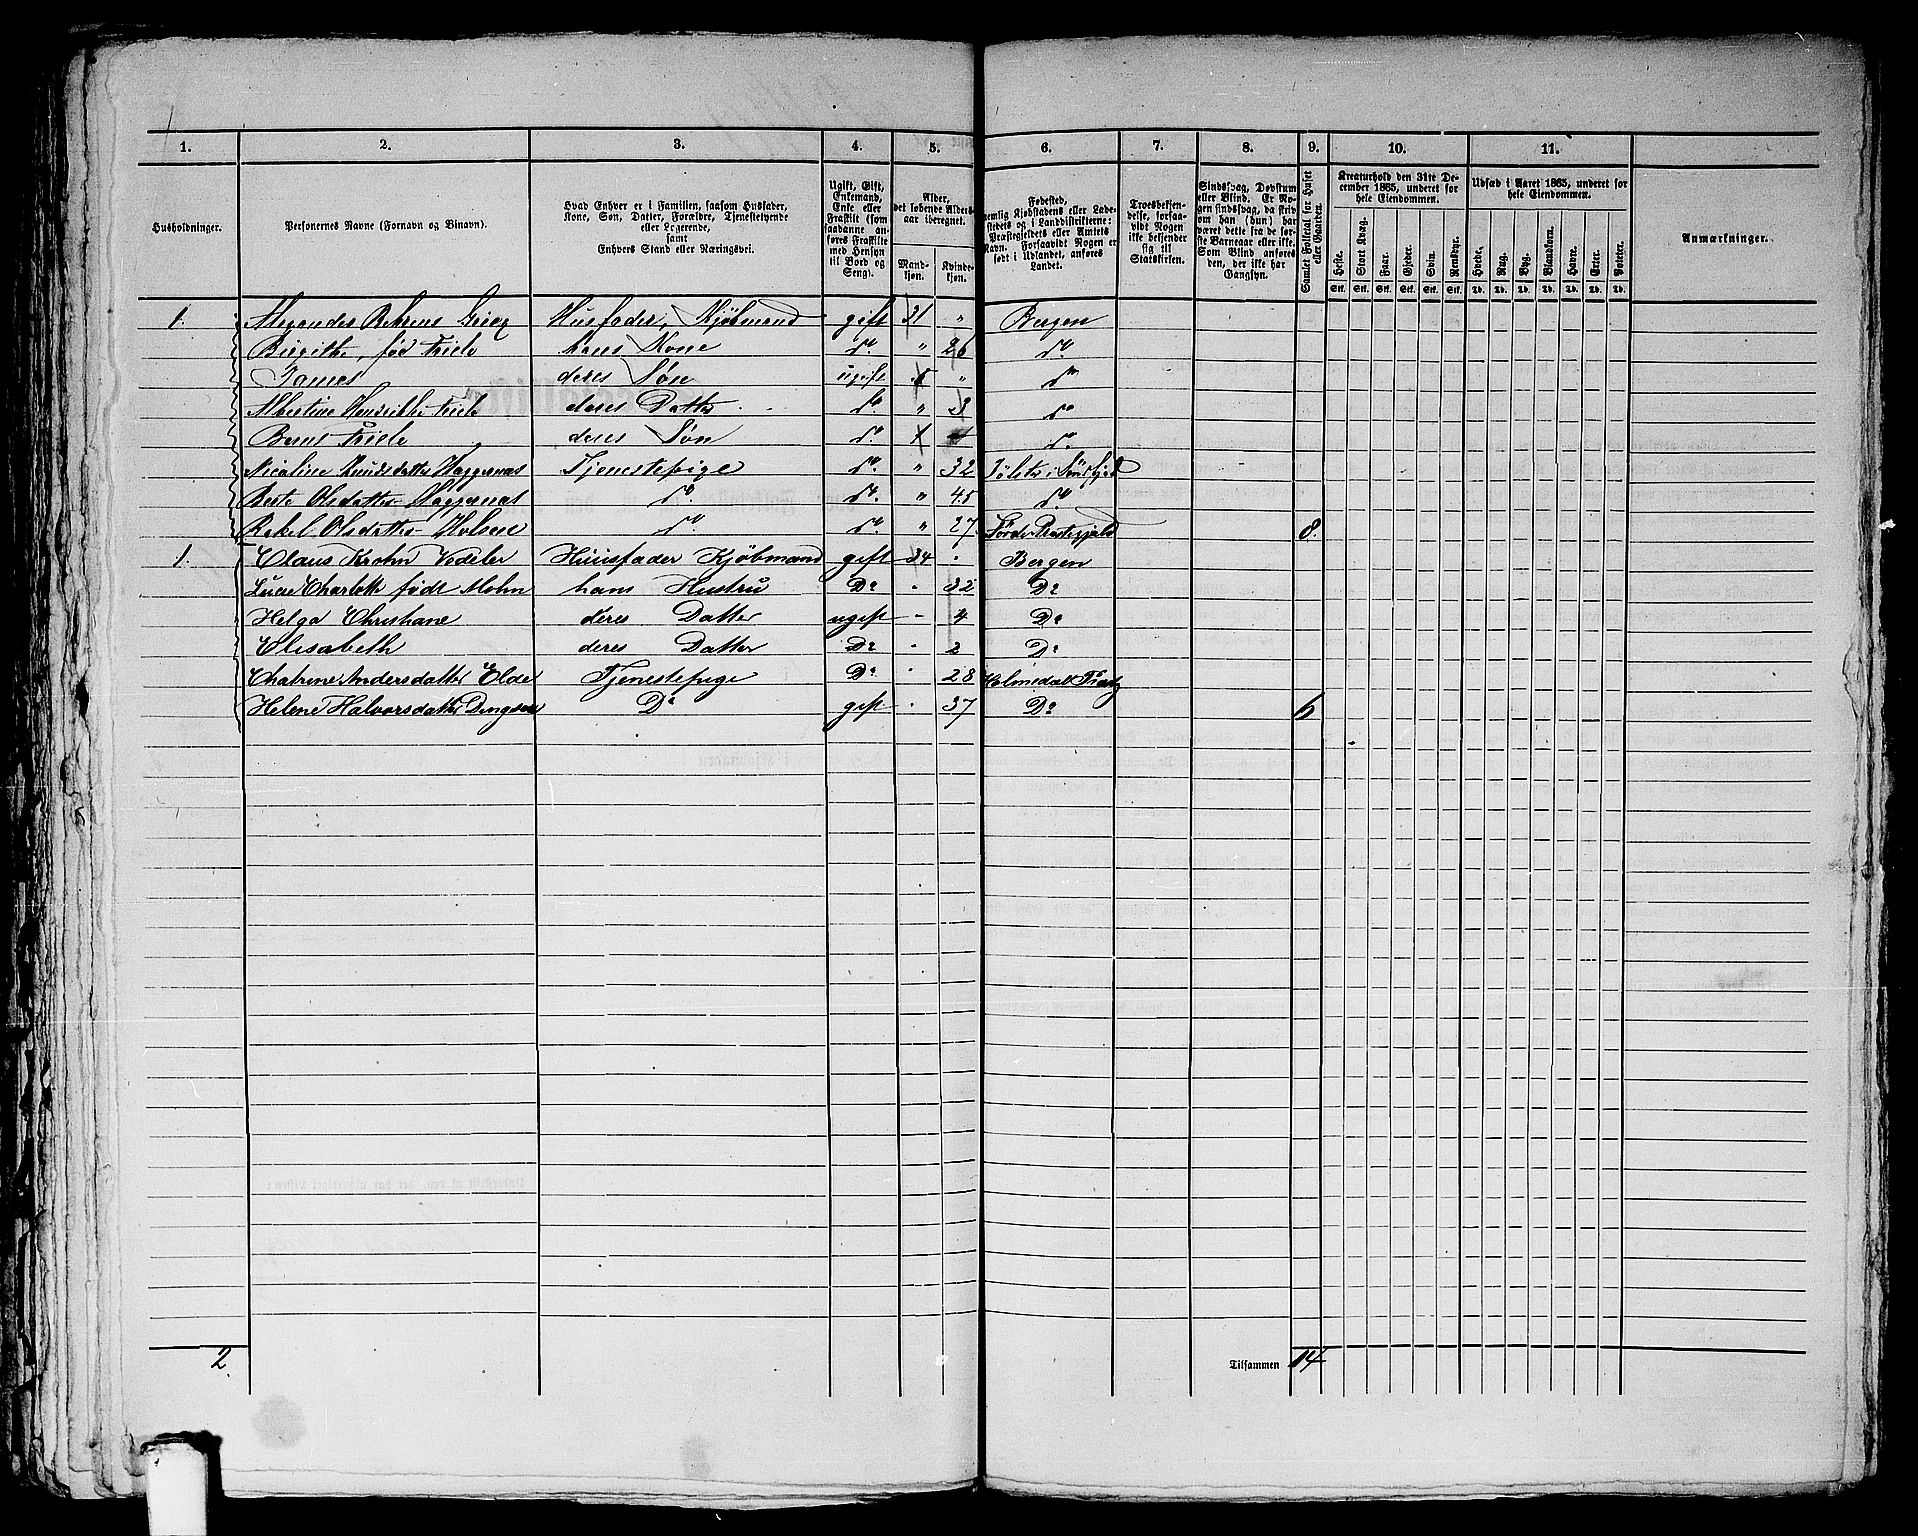 1. 2. 3. 4. 5. 6. 7. 8. 9. 10. 11.
Husholdninger.
Personernes Navne (Fornavn og Binavn).
Hvad Enhver er i Familien, saasom Husfader,
Kone, Søn, Datter, Forældre, Tjenestetyende
eller Logerende,
samt
Enhvers Stand eller Næringsvei.
Ugift, Gift,
Enkemand,
Enke eller
Fraskilt (som
saadanne an-
føres Fraskilte
med Hensyn
til Bord og
Seng).
Alder,
det løbende Alders-
aar iberegnet.
Mand-
kjøn.
Kvinde-
kjøn.
Fødested,
nemlig Kjøbstadens eller Lade-
stedets og i Landdistrikterne:
Præstegjeldets eller Amtets
Navn. Forsaavidt Nogen er
født i Udlandet, anføres
Landet.
Troesbekjen-
delse, forsaa-
vidt Nogen
ikke bekjender
sig til
Statskirken.
Sindssvag, Døvstum
eller Blind. Er No-
gen sindssvag, da skriv
om han (hun) har
været dette fra de før-
ste Barneaar eller ikke.
Som Blind anføres
den, der ikke har
Gangsyn.
Samlet Folketal for Huset
eller Gaarden.
Kreaturhold den 31te De-
cember 1865, anderet for
hele Eiendommen.
Heste. Stort Kvæg. Faar. Gjeder. Svin. Rensdyr.
Stk. Stk. Stk. Stk. Stk. Stk.
Udsæd i Aaret 1865, anderet for
hele Eiendommen.
Hvede. Rug. Byg. Blandkorn. Havre. Erter. Poteter.
Td. Td. Td. Td. Td. Td. Td.
Anmærkninger.
1. Alexander Behrens Grieg Husfader, Kjøbmand gift 31 " Bergen
Birgithe, fød Friele hans Kone do. " 26 do.
James deres Søn ugift " do
Albertine Hendrikke Friele deres Datter do " 3 do
Berns Friele deres Søn do. 1 do.
Nicoline Knudsdatter Haggenæs Tjenestepige do. " 32 Jølster i Søndfjord
Berte Olsdatter Haggenæs do. do. " 45 do.
Rakel Olsdatter Holsene do do " 27. Førde Præstegjeld 8.
1. Claus Krohn Vedeler Huusfader Kjøbmand gift 34 Bergen
Lucie Charlotte født Mohn hans Hustru Do 32 Do
Helga Christiane deres Datter ugift - 4 Do
Elisabeth deres Datter Do 2 Do
Chatrine Andersdatter Elde Tjenestepige Do 28 Holmedals Præstg
Helene Halvorsdatter Do gift 37 Do 6
2. Tilsammen 14